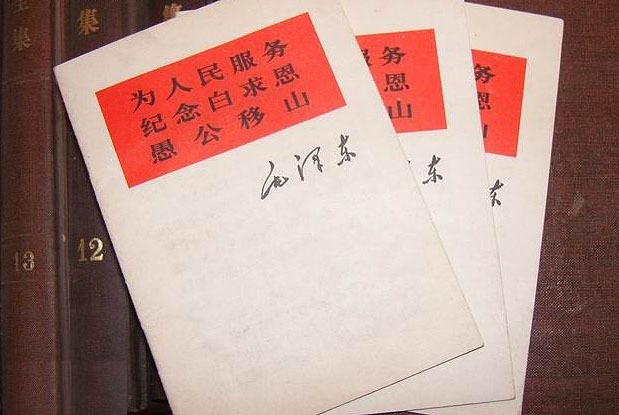 为人民服务
纪念白求恩
愚公移山
毛泽东
服务
求恩
山
东
务
恩
山
东
集
集
12
13